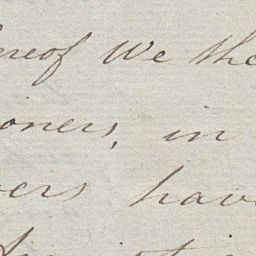 ereof We the
oners, in
ers have